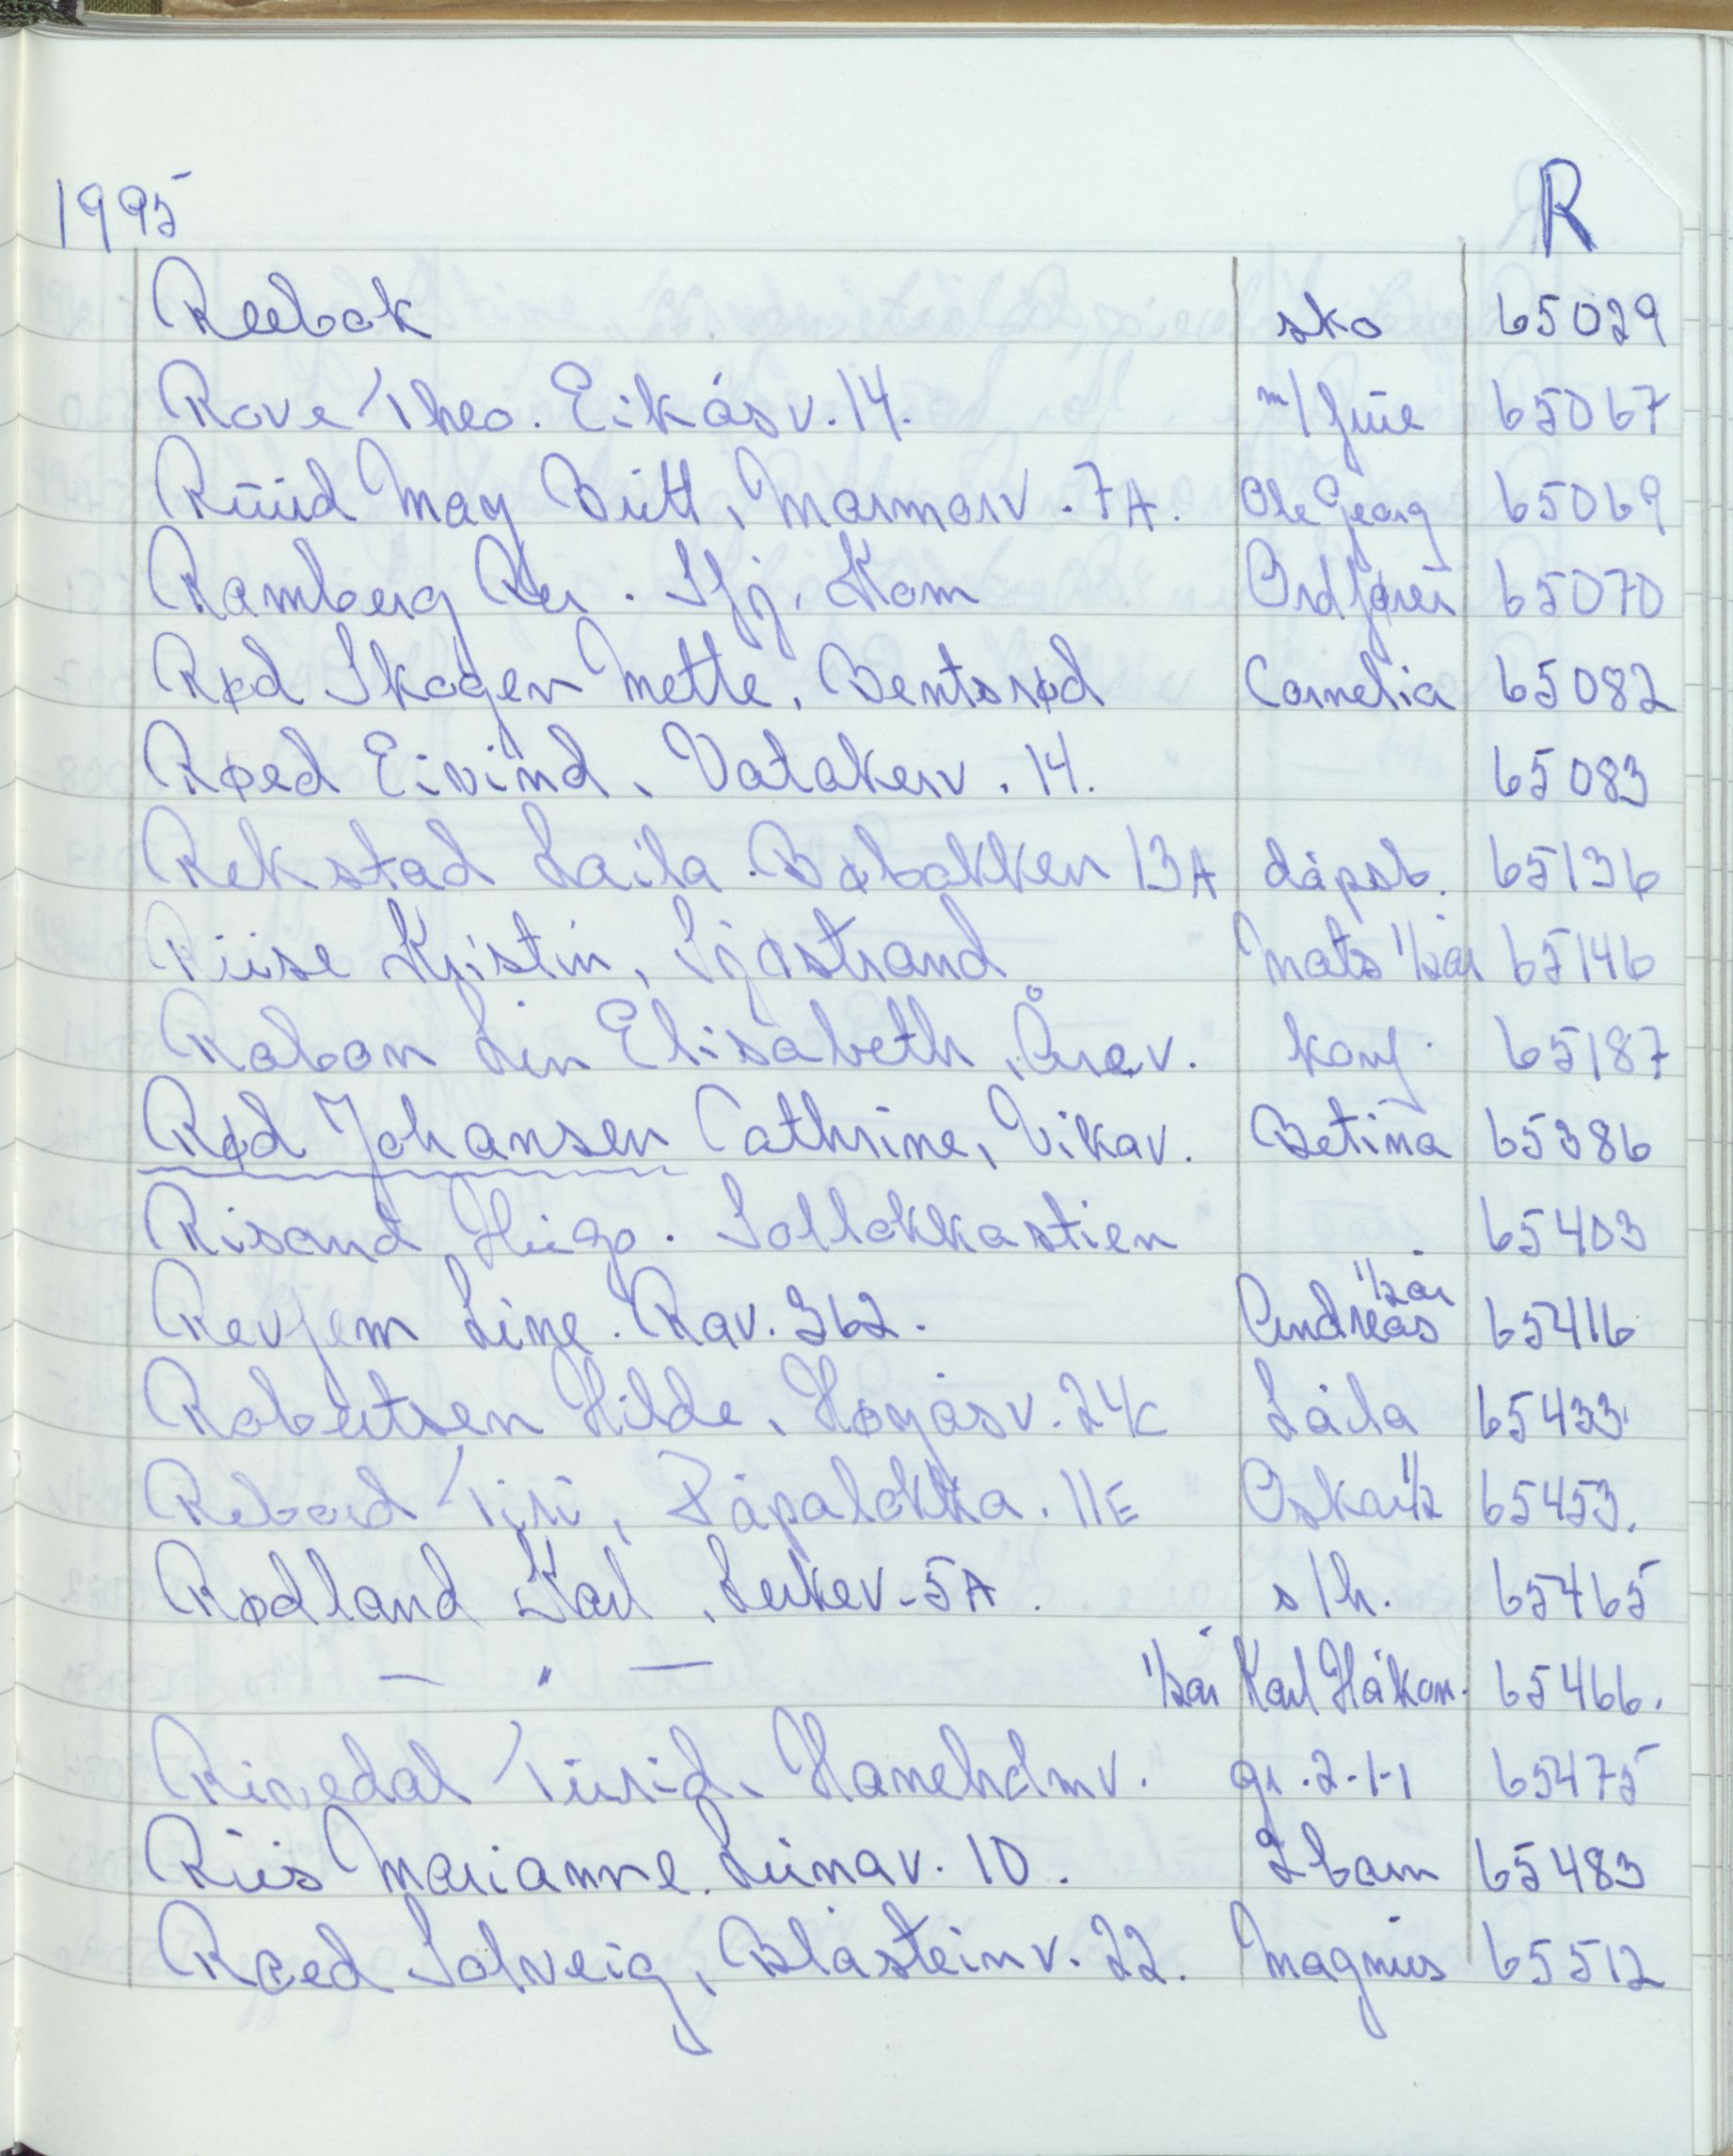 1995 R
Reebok sko 65029
Rove Theo. Eikåsv. 14. m/frue 65067
Ruud May Britt, Marmorv. 7A. Ole Georg 65069
Ramberg Per. Sfj. Kom Ordfører 65070
Rød Skogen Mette, Bentsrød Cornelia 65082
Røed Eivind, Vatakerv. 14. 65083
Rekstad Laila. Bøbakken 13A dåpsb. 65136
Riise Kristin, Sjøstrand Mats 1/2 år 65146
Robon Lin Elisabeth, Årøv. konf. 65187
Rød Johansen Cathrine, Vikav. Betina 65386
Risand Hugo. Solløkkastien 65403
Revjem Line. Rav. 362. Andreas 1/2 år 65416
Robertsen Hilde, Høyåsv. 24c Laila 65433
Rebord Siri, Pápaløkka. 11E Oskar 1/2 65453.
Rødland Karl, Lerkev. 5A. s/h. 65465
— " — 1/2 år Karl Håkon. 65466.
Rivedal Turid, Haneholmv. gr. 2-1-1 65475
Riis Marianne. Lunav. 10. 2 barn 65483
Røed Solveig, Blåsteinv. 22. Magnus 65512